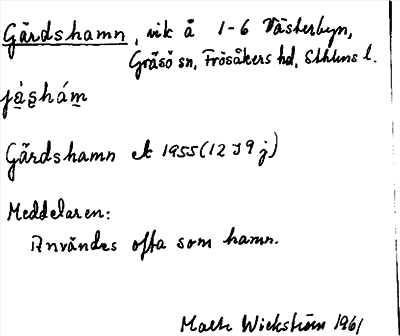 Gårdshamn, vik å 1-6 Västerbyn,
Gräsö sn, Frösåkers hd, Sthlms l.
jàs̱há̱m
Gårdshamn ek 1955 (12J9j)
Meddelaren:
Användes ofta som hamn.
Malte Wickström 1961